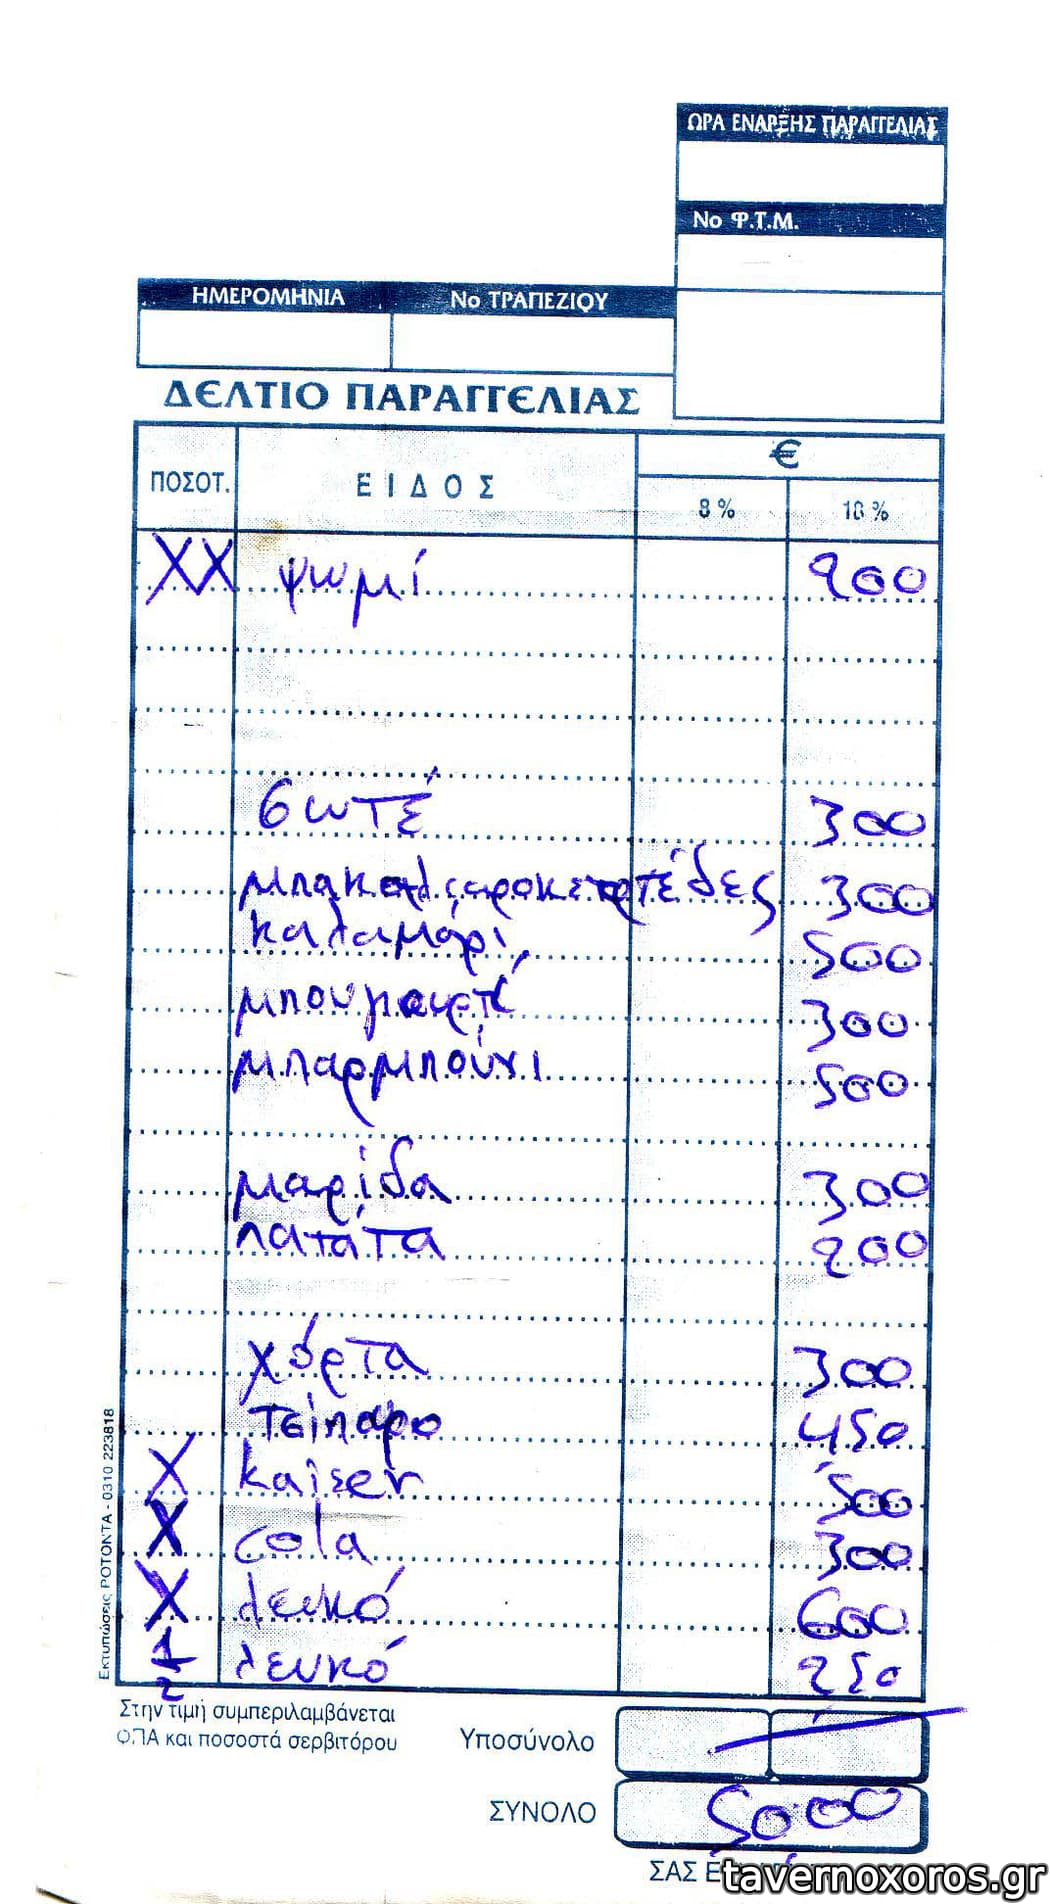 ΩΡΑ ΕΝΑΡΞΗΣ ΠΑΡΑΓΓΕΛΙΑΣ
Νο Φ.Τ.Μ.
ΗΜΕΡΟΜΗΝΙΑ Νο ΤΡΑΠΕΖΙΟΥ
ΔΕΛΤΙΟ ΠΑΡΑΓΓΕΛΙΑΣ
ΠΟΣΟΤ. ΕΙΔΟΣ €
8 % 18 %
XX ψωμί 200
σωτέ 300
300
καλαμάρι 500
300
μπαρμπούνι 500
μαρίδα 300
πατάτα 200
χόρτα 300
τσίπαρο 450
X kaiser 500
X cola 300
X λευκό 600
1/2 λευκό 250
Στην τιμή συμπεριλαμβάνεται
Φ.Π.Α και ποσοστά σερβιτόρου
Υποσύνολο
ΣΥΝΟΛΟ 5000
ΣΑΣ Ε
Εκτυπώσεις ΡΟΤΟΝΤΑ - 0310 223818
tavernoxoros.gr